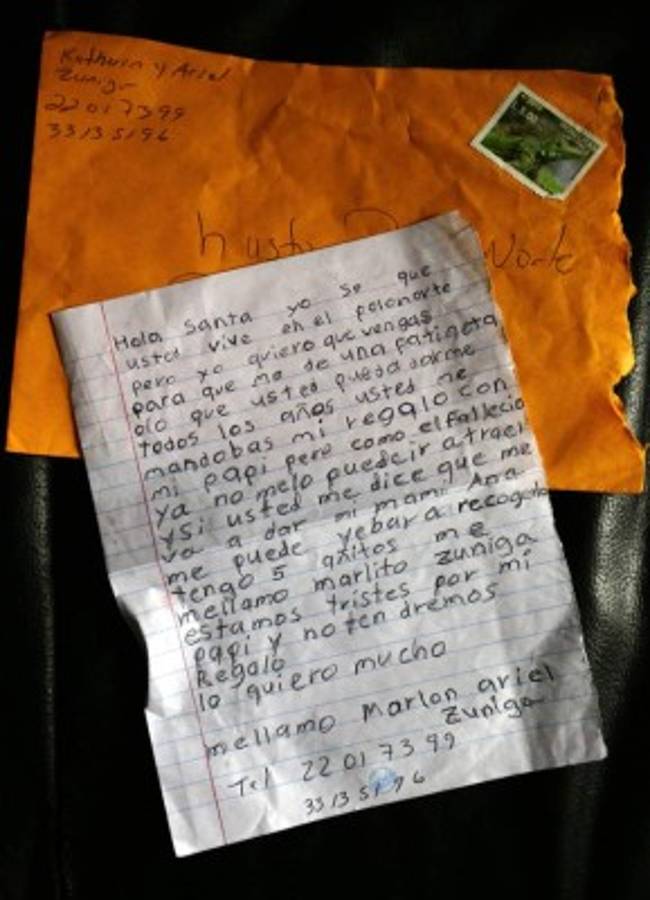 Kathurin y Ariel
Zuniga
22017399
33135196
Norte
Hola Santa yo se que
usted vive en el polonorte
pero yo quiero que vengas
para que me de una patineta
olo que usted pueda darme
todos los años usted me
mandobas mi regalo con
mi papi pero como el fallecio
ya no melo puedeir atraer
ysi usted me dice que me
va a dar mi mami Ana
me puede yebar a recogerlo
tengo 5 añitos me
mellamo marlito zuniga
estamos tristes por mi
papi y no ten dremos
Regalo
lo quiero mucho
mellamo Marlon ariel
Zuniga
Tel 22 01 73 99
33 13 51 96